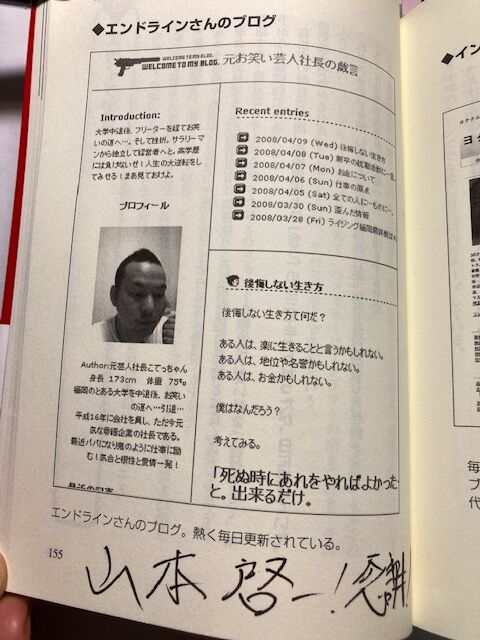 ◆エンドラインさんのブログ
WELCOME TO MY BLOG.
WELCOME TO MY BLOG. 元お笑い芸人社長の戯言
Introduction:
大学中退後、フリーターを経てお笑
いの道へ…。そして挫折。サラリーマ
ンから独立して経営者へと。高学歴
には負けないぜ!人生の大逆転をし
てみせる!まあ見ておけよ。
プロフィール
Author:元芸人社長こてっちゃん
身長 173cm 体重 75kg
福岡のとある大学を中退後、お笑い
の道へ…引退…
平成16年に会社を興し、ただ今元
気な零細企業の社長である。
最近パパになり鬼のように仕事に励
む!気合と根性と愛情一発!
最近の記事
Recent entries
2008/04/09 (Wed) 後悔しない生き方
2008/04/08 (Tue) 新卒の就職活動に
2008/04/07 (Mon) お金について
2008/04/06 (Sun) 仕事の原点
2008/04/05 (Sat) 全ての人に一ものに一。
2008/03/30 (Sun) 歪んだ情報
2008/03/28 (Fri) ライジング福岡最終戦は
後悔しない生き方
後悔しない生き方て何だ?
ある人は、楽に生きることと言うかもしれない。
ある人は、地位や名誉かもしれない。
ある人は、お金かもしれない。
僕はなんだろう?
考えてみる。
「死ぬ時にあれをやればよかった
と。出来るだけ。
エンドラインさんのブログ。熱く毎日更新されている。
155
山本 啓一!感謝!
◆イン
ヨクナル
ヨ
毎
ブ
代